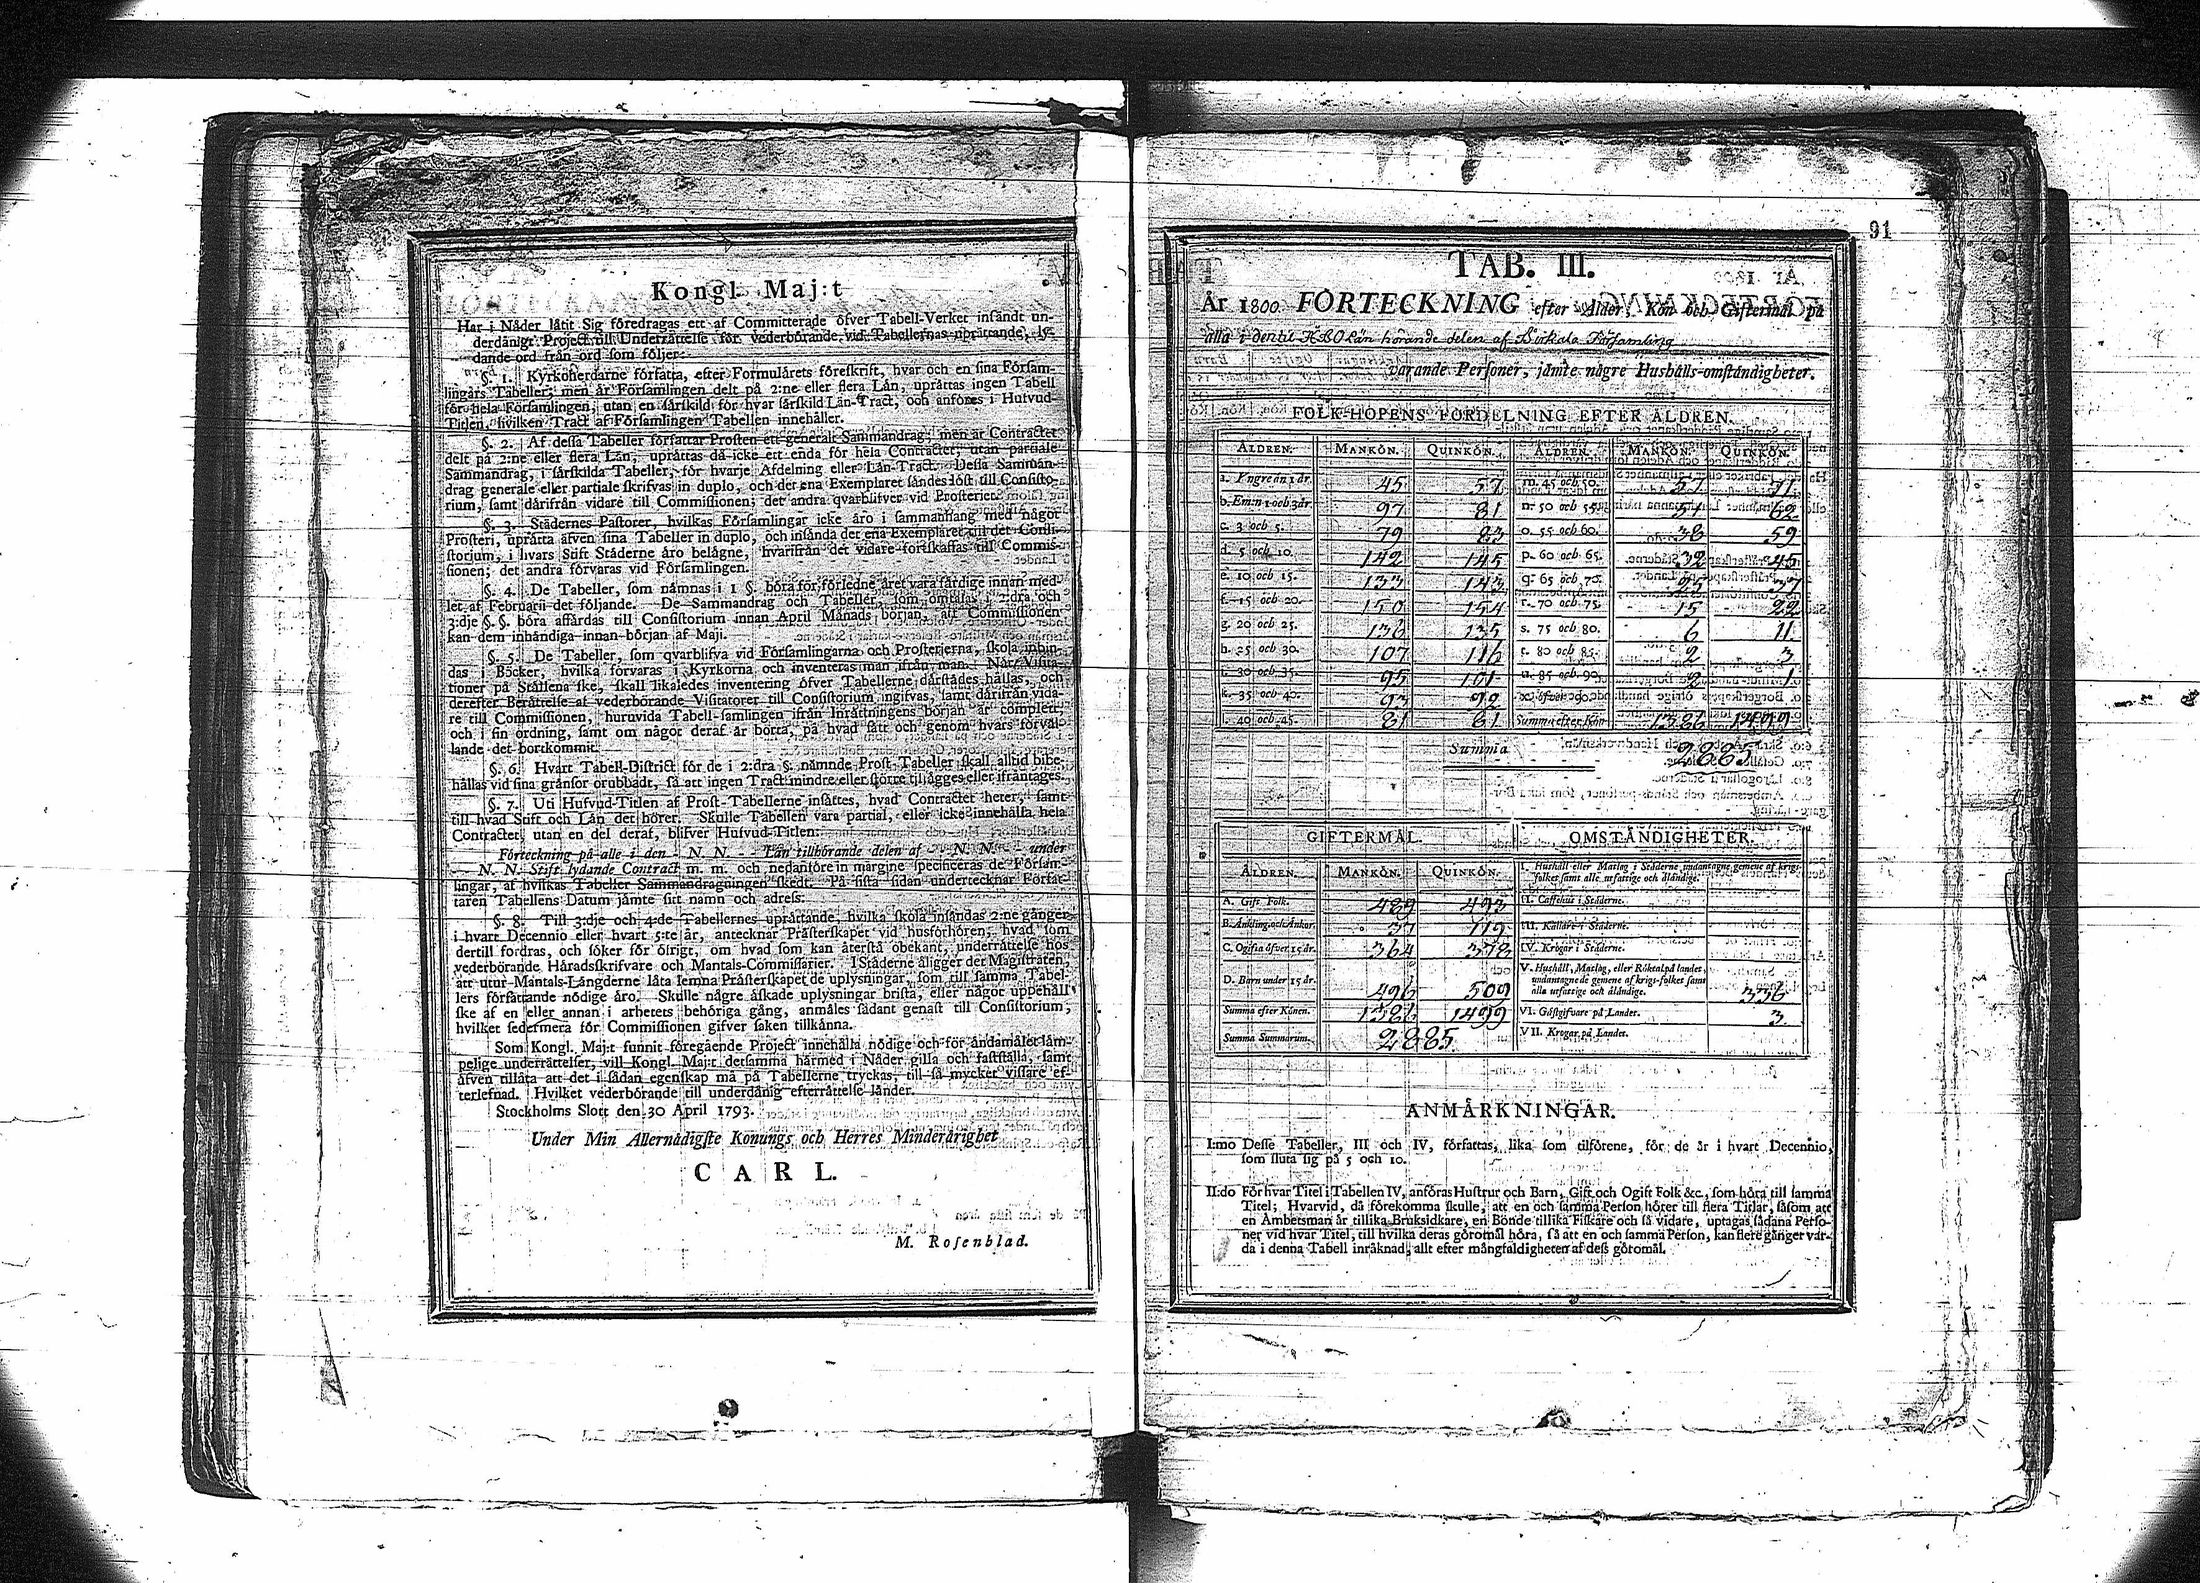 Kongl. Maj:t
Har i Nåder låtit Sig föredragas ett af Committerade öfver Tabell-Verket insåndt un-
derdånigt Project till Underråttelse för vederbörande vid Tabellernas uprättande, ly-
dande ord från ord som följer:
§. 1. Kyrkoherdarne författa, efter Formulårets föreskrift, hvar och en sina Försam-
lingars Tabeller; men år Församlingen delt på 2:ne eller flera Lån, upråttas ingen Tabell
för hela Församlingen, utan en sårskild för hvar sårskild Lån-Tract, och anföres i Hufvud-
Titlen, hvilken Tract af Församlingen Tabellen innehåller.
§. 2. Af dessa Tabeller författar Prosten ett generalt Sammandrag; men år Contractet
delt på 2:ne eller flera Lån, upråttas då icke ett enda för hela Contractet, utan partiale
Sammandrag, i sårskilda Tabeller, för hvarje Afdelning eller Lån-Tract. Dessa Samman-
drag generale eller partiale skrifvas in duplo, och det ena Exemplaret såndes löst till Consisto-
rium, samt dårifrån vidare till Commissionen; det andra qvarblifver vid Prosteriet.
§. 3. Stådernes Pastorer, hvilkas Församlingar icke åro i sammanhang med något
Prosteri, upråtta åfven sina Tabeller in duplo, och insånda det ena Exemplaret till det Consi-
storium, i hvars Stift Ståderne åro belågne, hvarifrån det vidare fortskaffas till Commis-
sionen; det andra förvaras vid Församlingen.
§. 4. De Tabeller, som nåmnas i 1 §. böra för förledne året vara fårdige innan med-
let af Februarii det följande. De Sammandrag och Tabeller, som omtalas i 2:dra och
3:dje §. §. böra affårdas till Consistorium innan April Månads början, att Commissionen
kan dem inhåndiga innan början af Maji.
§. 5. De Tabeller, som qvarblifva vid Församlingarna och Prosterierna, skola inbin-
das i Böcker, hvilka förvaras i Kyrkorna och inventeras man ifrån man. Når Visita-
tioner på Stållena ske, skall likaledes inventering öfver Tabellerne dårstådes hållas, och
derefter Beråttelse af vederbörande Visitatorer till Consistorium ingifvas, samt dårifrån vida-
re till Commissionen, huruvida Tabell-samlingen ifrån Inråttningens början år complett,
och i sin ordning, samt om något deraf år borta, på hvad sått och genom hvars förvål-
lande det bortkommit.
§. 6. Hvart Tabell-District för de i 2:dra §. nåmnde Prost-Tabeller skall alltid bibe-
hållas vid sina grånsor orubbadt, så att ingen Tract mindre eller större tillågges eller ifråntages.
§. 7. Uti Hufvud-Titlen af Prost-Tabellerne insåttes, hvad Contractet heter, samt
till hvad Stift och Lån det hörer. Skulle Tabellen vara partial, eller icke innehålla hela
Contractet, utan en del deraf, blifver Hufvud-Titlen:
Förteckning på alle i den N. N. - - Lån tillhörande delen af - - N. N. - - under
- - N. N. Stift lydande Contract m. m. och nedanföre in margine specificeras de Försam-
lingar, af hvilkas Tabeller Sammandragningen skedt. På sista sidan undertecknar Förfat-
taren Tabellens Datum jåmte sitt namn och adress.
§. 8. Till 3:dje och 4:de Tabellernes upråttande, hvilka skola insåndas 2:ne gånger
i hvart Decennio eller hvart 5:te år, antecknar Pråsterskapet vid husförhören, hvad som
dertill fordras, och söker för öfrigt, om hvad som kan återstå obekant, underråttelse hos
vederbörande Håradsskrifvare och Mantals-Commissarier. I Ståderne åligger det Magistraten,
att utur Mantals-Långderne låta lemna Pråsterskapet de uplysningar, som till samma Tabel-
lers författande nödige åro. Skulle någre åskade uplysningar brista, eller något uppehåll
ske af en eller annan i arbetets behöriga gång, anmåles sådant genast till Consistorium,
hvilket sedermera för Commissionen gifver saken tillkånna.
Som Kongl. Maj:t funnit föregående Project innehålla nödige och för åndamålet låm-
pelige underråttelser, vill Kongl. Maj:t detsamma hårmed i Nåder gilla och fastställa, samt
åfven tillåta att det i sådan egenskap må på Tabellerne tryckas, till så mycket vissare ef-
terlefnad. Hvilket vederbörande till underdånig efterråttelse lånder.
Stockholms Slott den 30 April 1793.
Under Min Allernådigste Konungs och Herres Minderårighet
CARL.
M. Rosenblad.
91
TAB. III.
År 1800. FÖRTECKNING efter Ålder, Kön och Giftermål på
alla i den til ÅBO Län hörande delen af Birkala Församling
varande Personer, jåmte någre Hushålls-omståndigheter.
FOLK-HOPENS FÖRDELNING EFTER ÅLDREN.
ÅLDREN. MANKÖN. QUINKÖN. ÅLDREN. MANKÖN. QUINKÖN.
a. Yngre ån 1 år. 45 57 m. 45 och 50. 57 71
b. Em:n 1 och 3 år 97 81 n. 50 och 55. 51 62
c. 3 och 5. 79 83 o. 55 och 60. 38 59
d. 5 och 10. 142 145 p. 60 och 65. 32 45
e. 10 och 15. 133 143 q. 65 och 70. 25 37
f. 15 och 20. 150 154 r. 70 och 75. 15 22
g. 20 och 25. 136 135 s. 75 och 80. 6 11
h. 25 och 30. 107 116 t. 80 och 85. 2 3
i. 30 och 35. 95 101 u. 85 och 90. 2 1
k. 35 och 40. 93 92 x. öfver 90
l. 40 och 45. 81 81 Summa efter Kön 1386 1499
Summa 2885
GIFTERMÅL. OMSTÅNDIGHETER.
ÅLDREN. MANKÖN. QUINKÖN. I. Hushåll eller Matlag i Ståderne, undantagne gemene af krigs-
folket samt alle utfattige och ålåndige.
A. Gift Folk. 489 493 II. Caffehus i Ståderne.
B. Ånkling. och Ånkor. 37 119 III. Kållare i Ståderne.
C. Ogifta öfver 15 år. 364 378 IV. Krögar i Ståderne.
D. Barn under 15 år. 496 509 V. Hushåll, Matlag, eller Röktal på landet,
undantagne de gemene af krigs-folket samt
alla utfattige och ålåndige. 336
Summa efter Könen. 1386 1499 VI. Gåstgifvare på Landet. 3.
Summa Summarum. 2885. VII. Krogar på Landet.
ANMÅRKNINGAR.
I:mo Desse Tabeller, III och IV, författas, lika som tilförene, för de år i hvart Decennio,
som sluta sig på 5 och 10.
II:do För hvar Titel i Tabellen IV, anföras Hustrur och Barn, Gift och Ogift Folk &c., som höra till samma
Titel; Hvarvid, då förekomma skulle, att en och samma Person hörer till flera Titlar, såsom att
en Åmbetsman år tillika Bruksidkare, en Bonde tillika Fiskare och så vidare, uptagas sådana Perso-
ner vid hvar Titel, till hvilka deras göromål höra, så att en och samma Person, kan flere gånger var-
da i denna Tabell inråknad, allt efter mångfaldigheten af dess göromål.